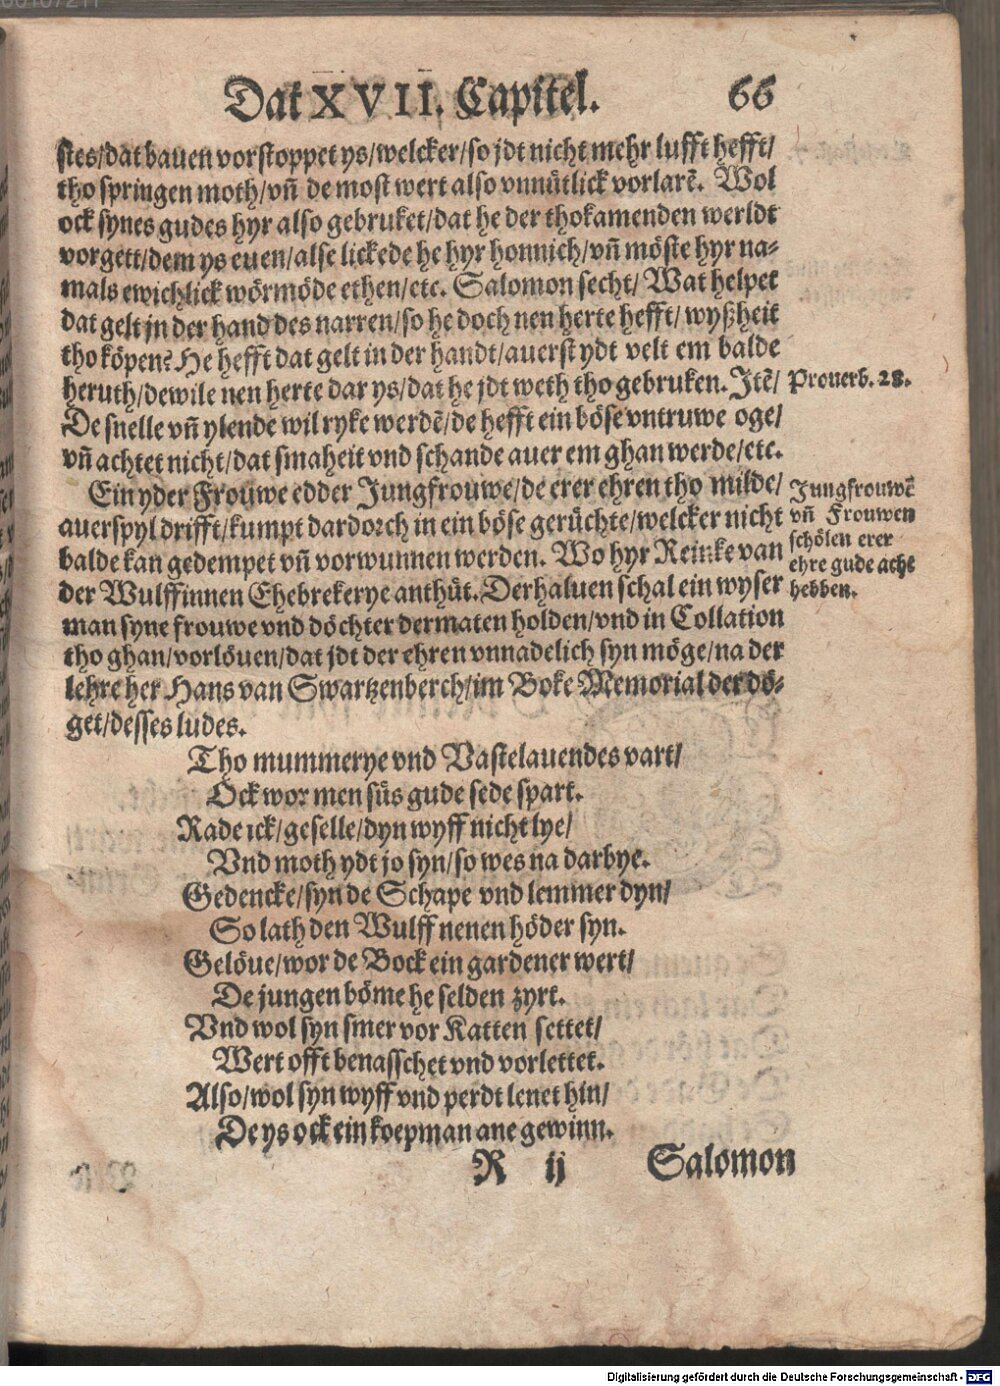 Dat XVII. Capitel. 66
stes/dat bauen vorstoppet ys/welcker/so jdt nicht mehr lufft hefft/
tho springen moth/vñ de most wert also vnnütlick vorlarẽ. Wol
ock synes gudes hyr also gebruket/dat he der thokamenden werldt
vorgett/dem ys euen/alse lickede he hyr honnich/vñ möste hyr na-
mals ewichlick wörmöde ethen/etc. Salomon secht/ Wat helpet
dat gelt jn der hand des narren/so he doch nen herte hefft/ wyßheit
tho köpen? He hefft dat gelt in der handt/auerst ydt velt em balde
heruth/dewile nen herte dar ys/dat he jdt weth tho gebruken. Jtẽ/
Prouerb. 28.
De snelle vñ ylende wil ryke werdẽ/de hefft ein böse vntruwe oge/
vñ achtet nicht/dat smaheit vnd schande auer em ghan werde/etc.
Ein yder Frouwe edder Jungfrouwe/de erer ehren tho milde/
auerspyl drifft/kumpt dardorch in ein böse gerüchte/welcker nicht
balde kan gedempet vñ vorwunnen werden. Wo hyr Reinke van
der Wulffinnen Ehebrekerye anthüt. Derhaluen schal ein wyser
man syne frouwe vnd döchter dermaten holden/vnd in Collation
tho ghan/vorlöuen/dat jdt der ehren vnnadelich syn möge/na der
lehre her Hans van Swartzenberch/im Boke Memorial der dö-
get/desses ludes.
Jungfrouwẽ
vñ Frouwen
schölen erer
ehre gude acht
hebben.
Tho mummerye vnd Vastelauendes vart/
Ock wor men süs gude sede spart.
Rade ick/geselle/dyn wyff nicht lye/
Vnd moth ydt jo syn/so wes na darbye.
Gedencke/syn de Schape vnd lemmer dyn/
So lath den Wulff nenen höder syn.
Gelöue/wor de Bock ein gardener wert/
De jungen böme he selden zyrt.
Vnd wol syn smer vor Katten settet/
Wert offt benasschet vnd vorlettet.
Also/wol syn wyff vnd perdt lenet hin/
De ys ock ein koepman ane gewinn.
R ij Salomon
Digitalisierung gefördert durch die Deutsche Forschungsgemeinschaft - DFG